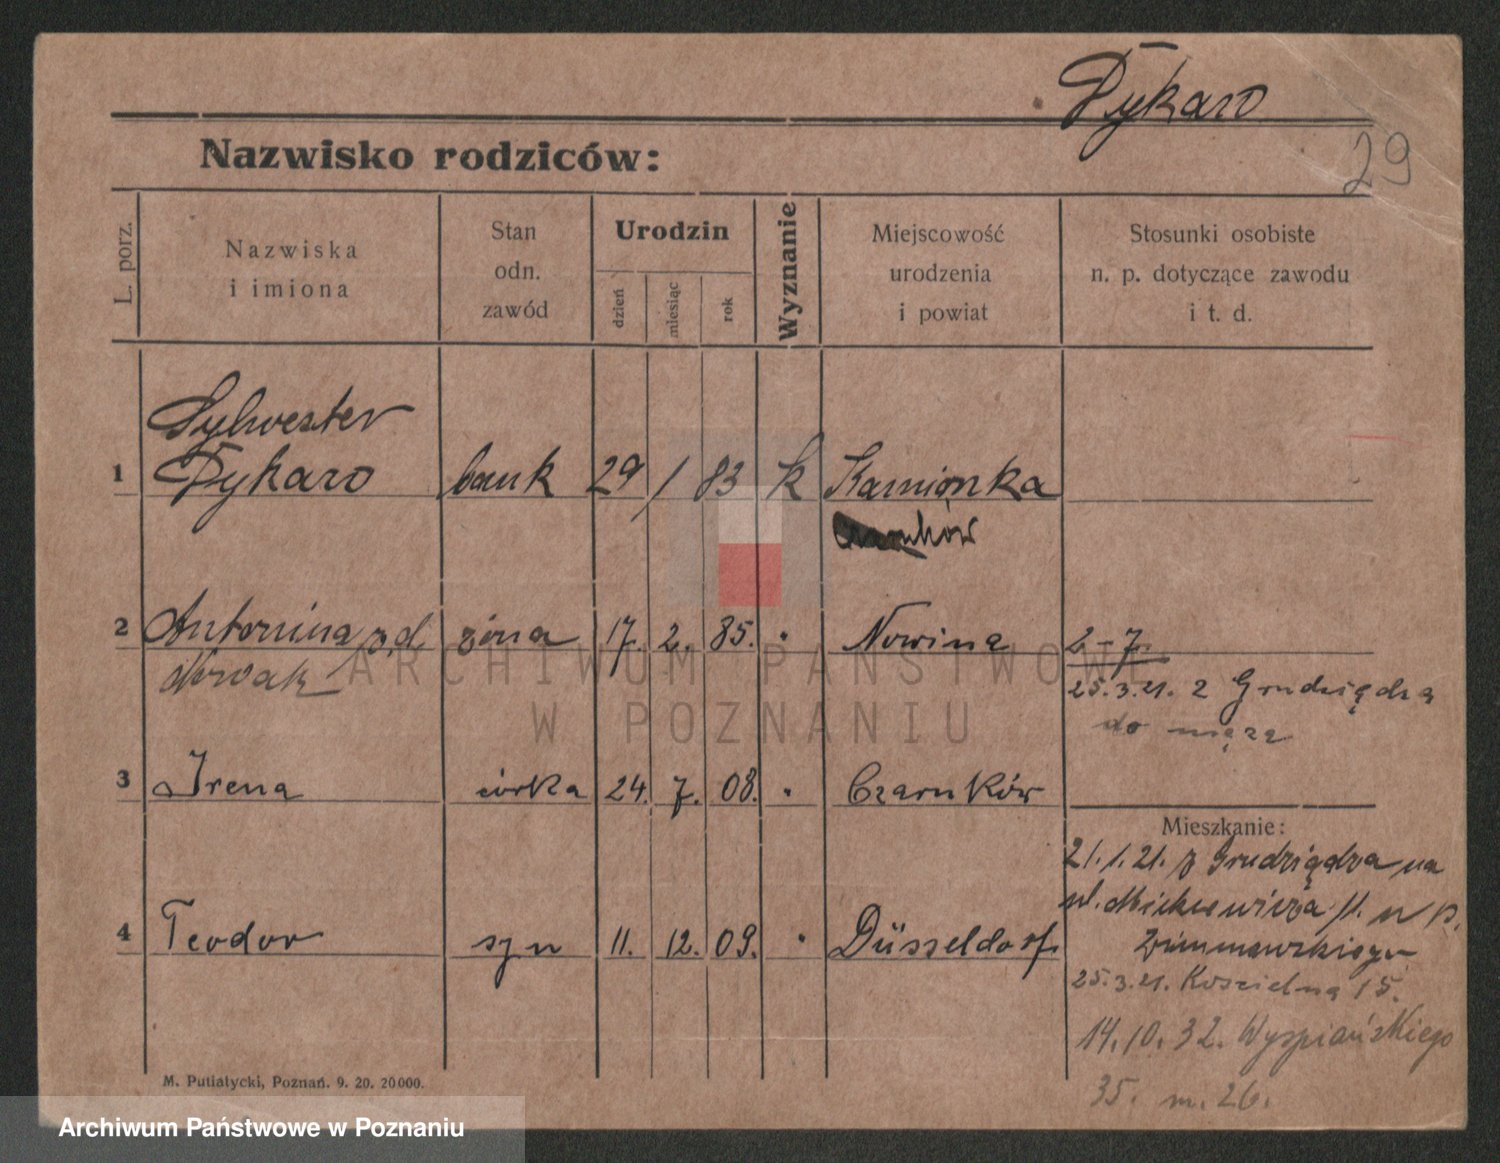 Dykaro
29
Nazwisko rodziców:
L. porz.
Nazwiska
i imiona
Stan
odn.
zawód
Urodzin
dzień
miesiąc
rok
Wyznanie
Miejscowość
urodzenia
i powiat
Stosunki osobiste
n. p. dotyczące zawodu
i t. d.
Sylwester
1 Dykaro bank 29 / 83 k Kamionka
2 Antonina z d. żona 17. 2. 85. " Nowina 2-7
Nowak
25.3.21. z Grudziądza
do męża
3 Irena córka 24. 7. 08. " Czarnków
Mieszkanie:
21.1.21. z Grudziądza na
ul. Mickiewicza 11. u p.
4 Teodor syn 11. 12. 09. " Düsseldorf
25.3.21. Kościelna 15.
14.10.32. Wyspiańskiego
35. m. 26.
M. Putiatycki, Poznań. 9. 20. 20000.
ARCHIWUM PAŃSTWOWE
W POZNANIU
Archiwum Państwowe w Poznaniu